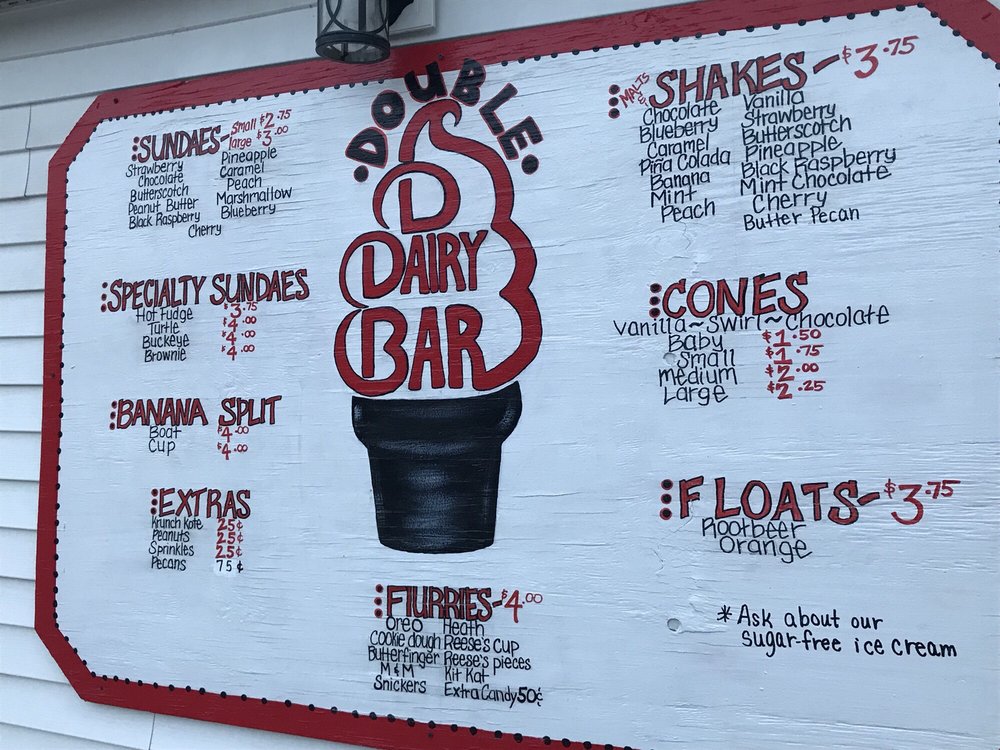 DOUBLE
D
DAIRY
BAR
SUNDAES- small $2.75
large $3.00
Strawberry
Chocolate
Butterscotch
Peanut Butter
Black Raspberry
Pineapple
Caramel
Peach
Marshmallow
Blueberry
Cherry
SPECIALTY SUNDAES
Hot Fudge $3.75
Turtle $4.00
Buckeye $4.00
Brownie $4.00
BANANA SPLIT
Boat $4.00
Cup $4.00
EXTRAS
Krunch Kote 25¢
Peanuts 25¢
Sprinkles 25¢
Pecans 75¢
FLURRIES-$4.00
Oreo Heath
Cookie dough Reese's Cup
Butterfinger Reese's pieces
M&M Kit Kat
Snickers Extra Candy 50¢
MALTS & SHAKES-$3.75
Chocolate
Blueberry
Caramel
Piña Colada
Banana
Mint
Peach
Vanilla
Strawberry
Butterscotch
Pineapple
Black Raspberry
Mint Chocolate
Cherry
Butter Pecan
CONES
Vanilla~Swirl~Chocolate
Baby $1.50
Small $1.75
medium $2.00
Large $2.25
FLOATS-$3.75
Rootbeer
Orange
*Ask about our
sugar-free ice cream